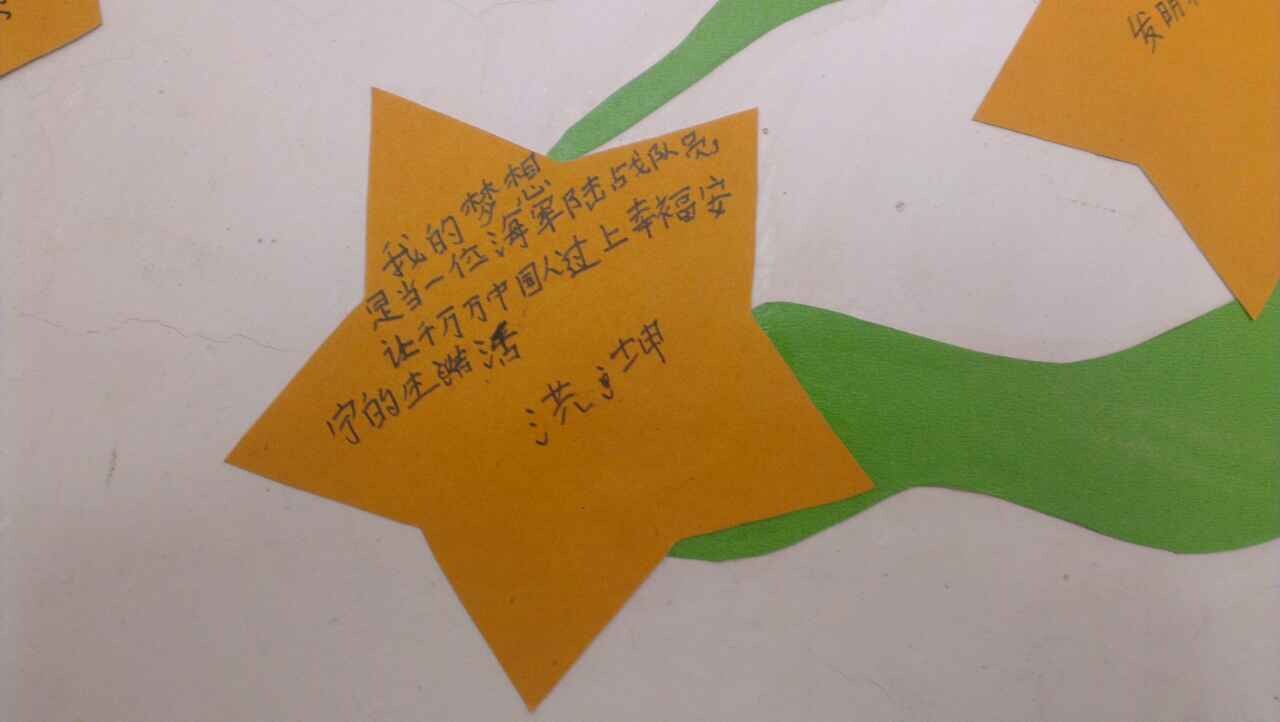 我的梦想
是当一位海军陆战队员
让千万万中国人过上幸福安
宁的生活
洪
坤
发明